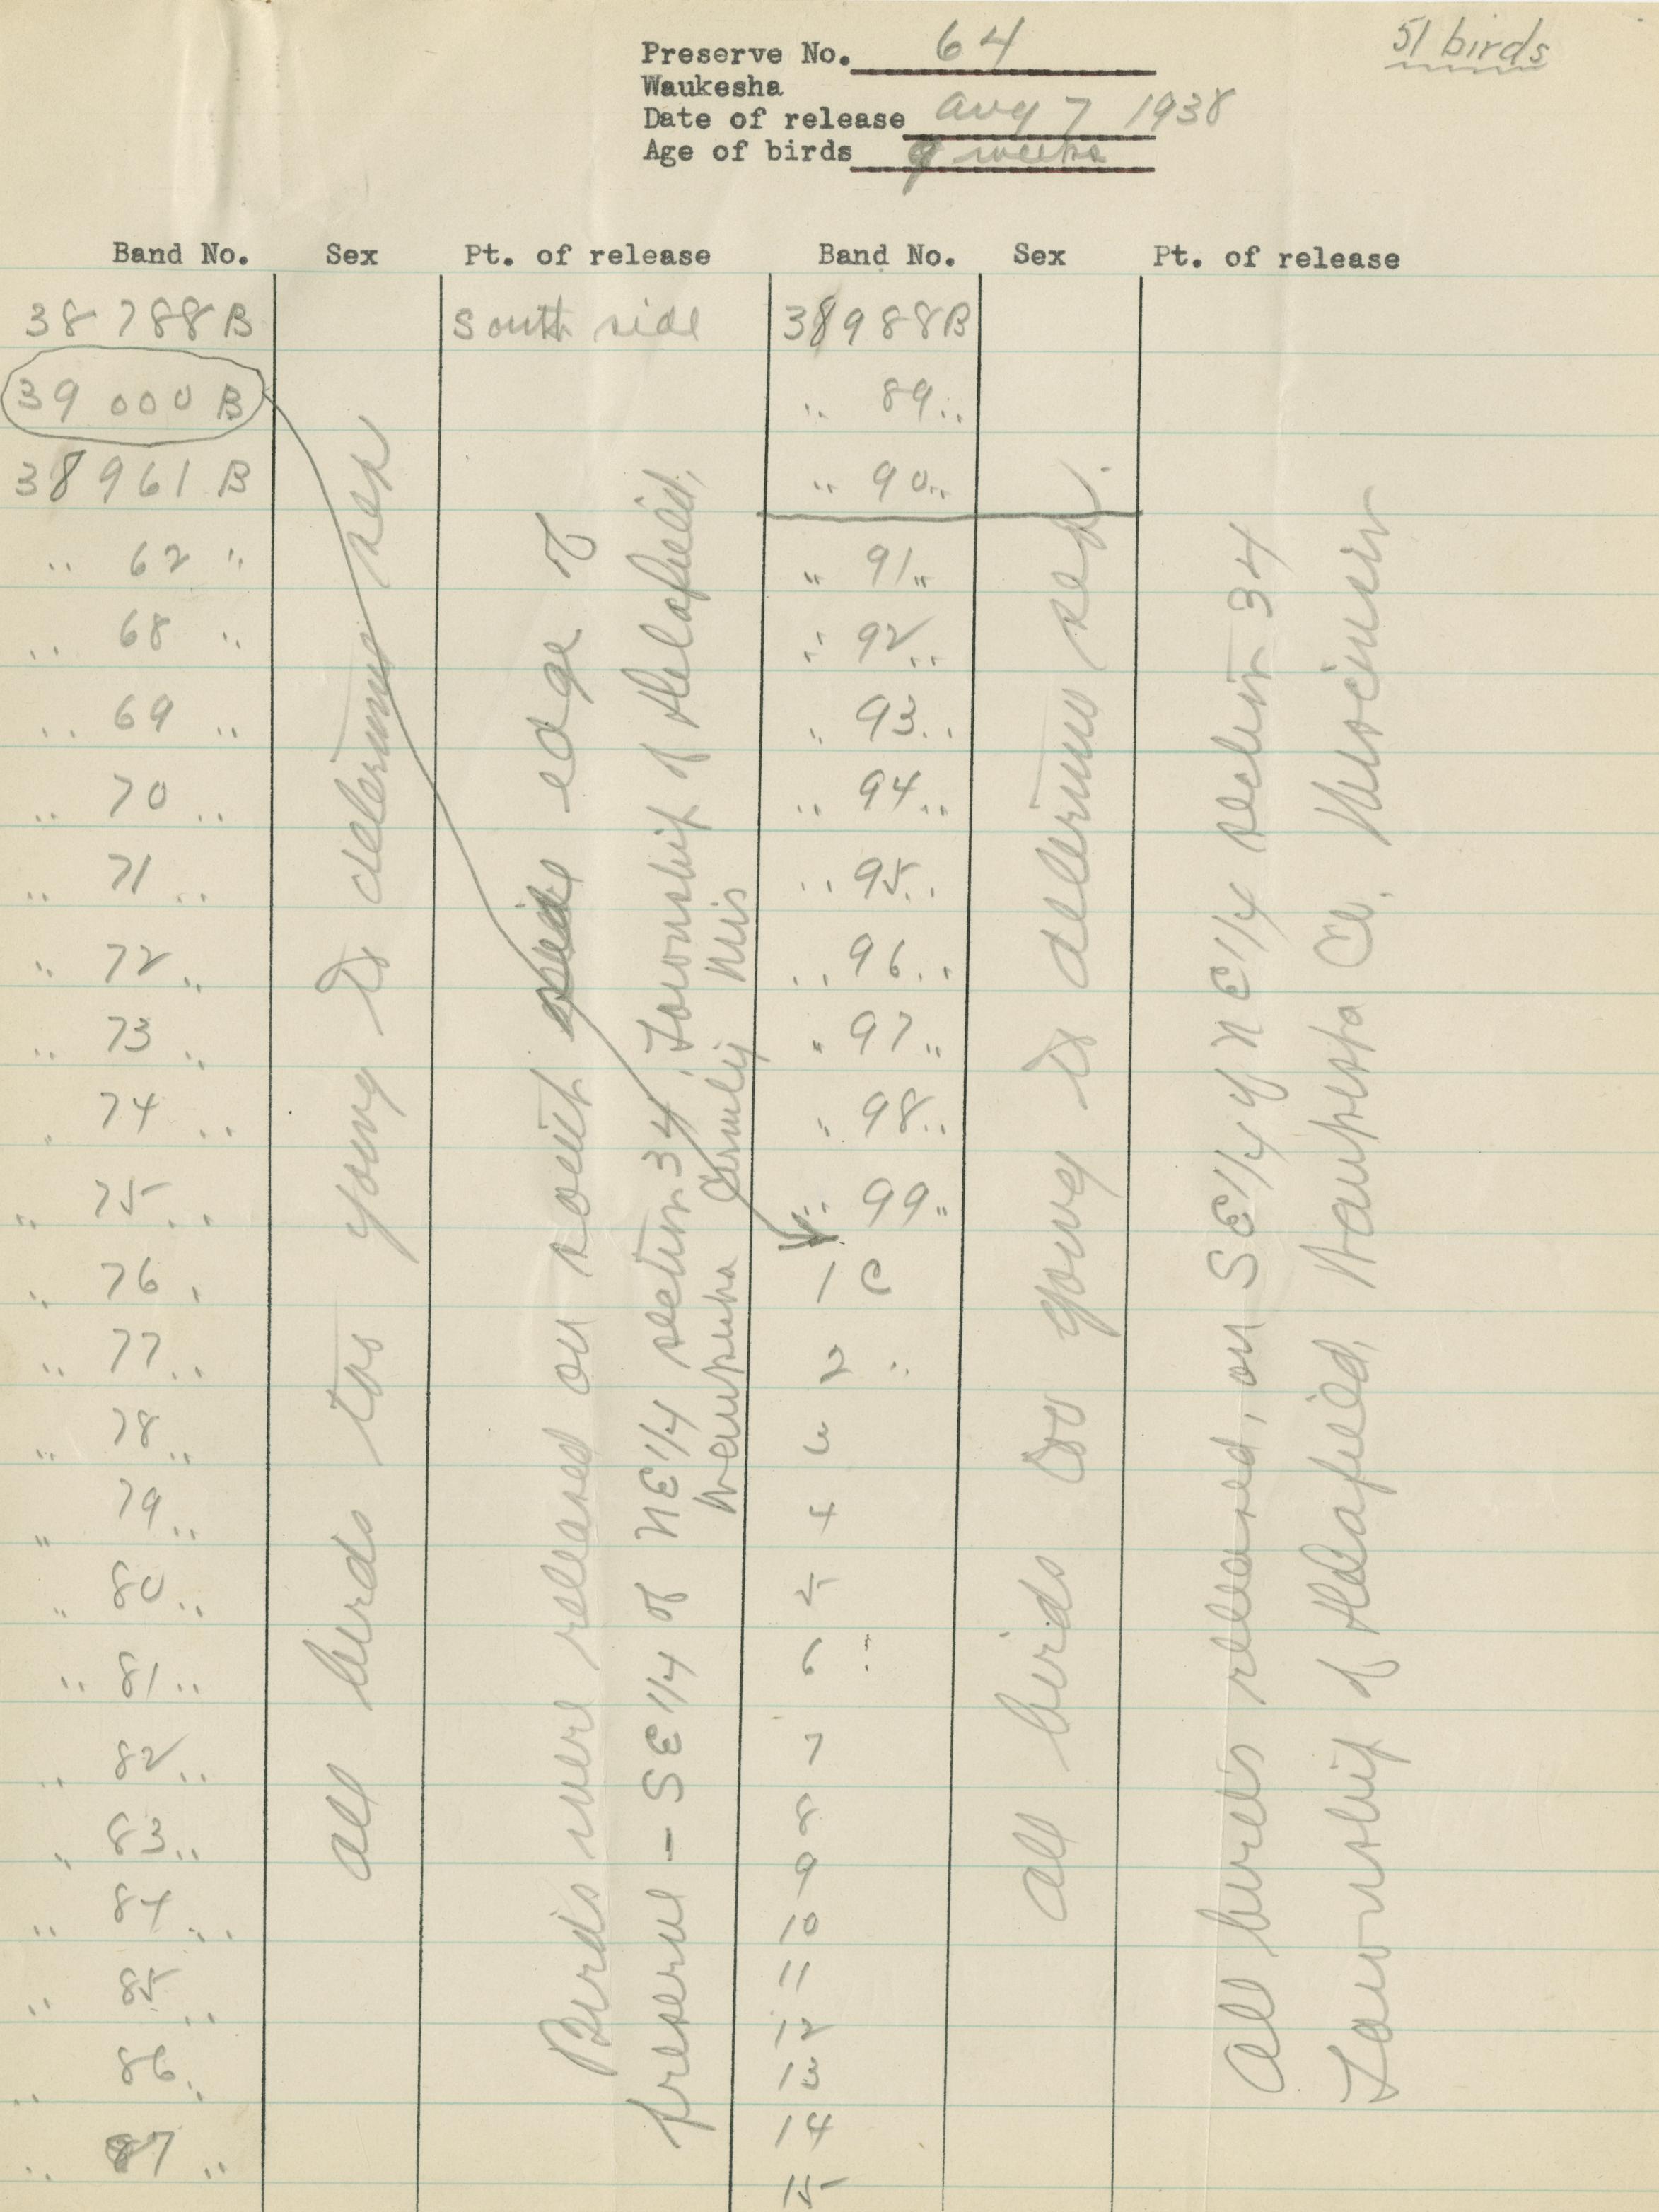 51 birds
Preserve No. 64
Waukesha
Date of release Aug 7 1938
Age of birds 9 weeks
Band No. Sex Pt. of release Band No. Sex Pt. of release
38788B South side 38988B
39000B .. 89 ..
38961B .. 90 ..
.. 62 .. .. 91 ..
.. 68 .. .. 92 ..
.. 69 .. .. 93 ..
.. 70 .. .. 94 ..
.. 71 .. .. 95 ..
.. 72 .. .. 96 ..
.. 73 .. .. 97 ..
.. 74 .. .. 98 ..
.. 75 .. .. 99 ..
.. 76 .. 1 C
.. 77 .. 2 ..
.. 78 .. 3
.. 79 .. 4
.. 80 .. 5
.. 81 .. 6 ..
.. 82 .. 7
.. 83 .. 8
.. 84 .. 9
.. 85 .. 10
.. 86 .. 11
.. 87 .. 12
13
14
15
all birds too young to determine sex
Birds were released on south side edge of
preserve - SE 1/4 of NE 1/4 section 34, Township of Delafield,
Waukesha County Wis
all birds too young to determine sex.
All birds released, on SE 1/4 of NE 1/4 section 34
Township of Delafield, Waukesha Co. Wisconsin